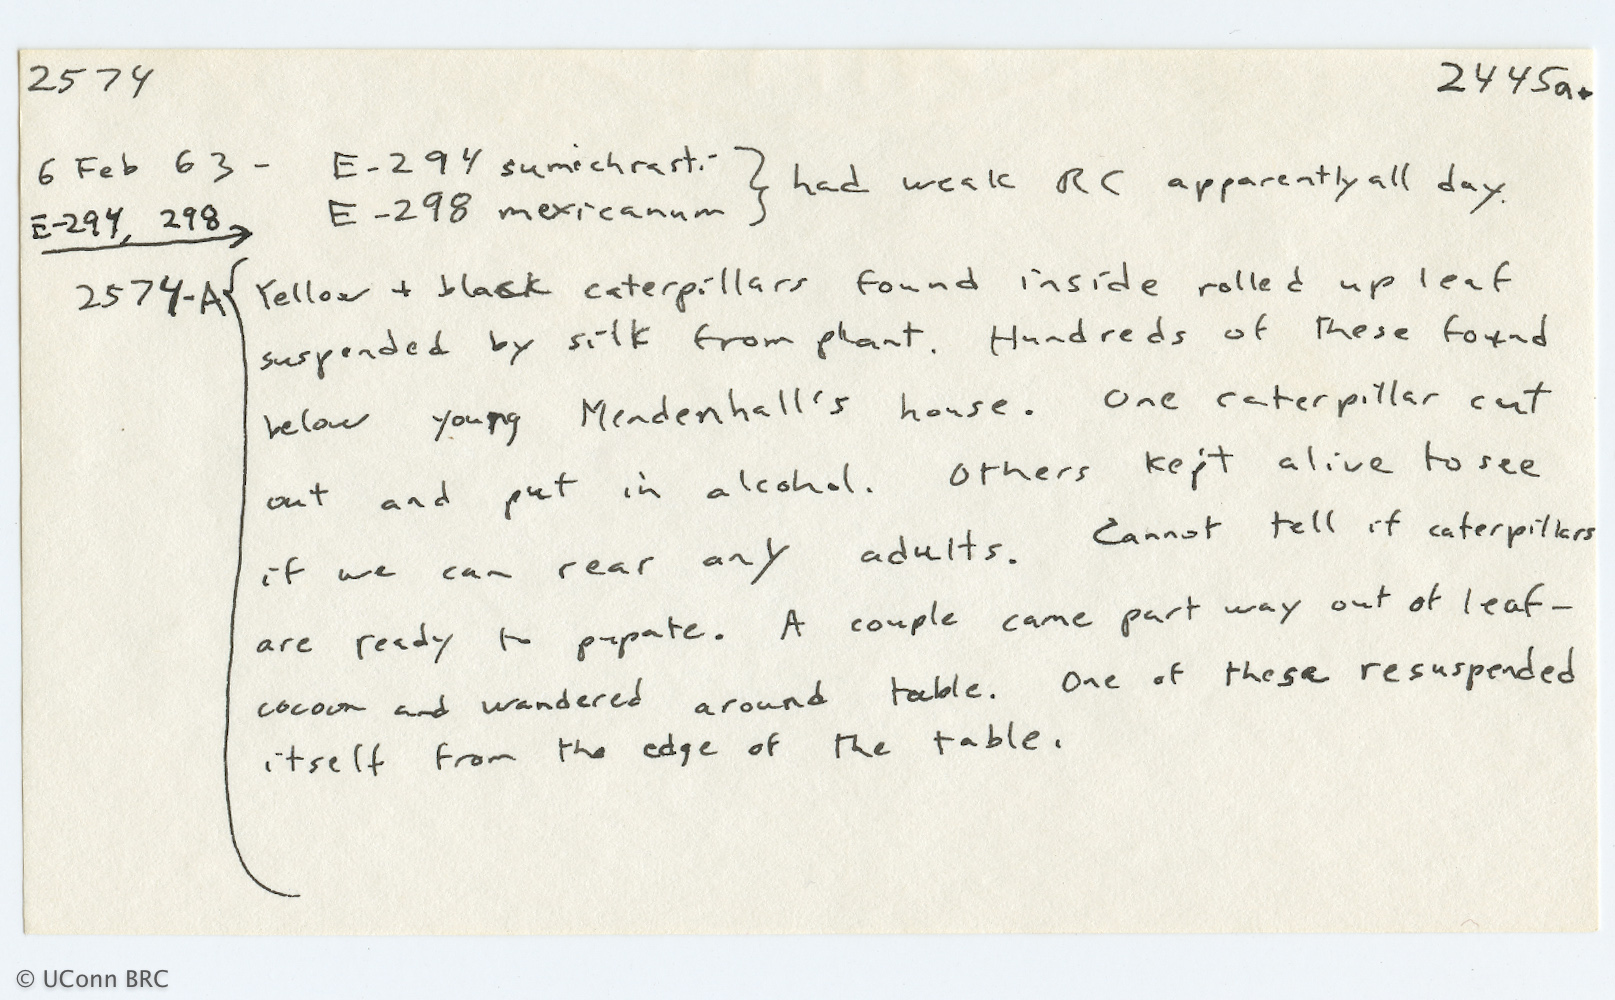 2574 2445a.
6 Feb 63 - E-294 sumichrasti } had weak RC apparently all day.
E-294, 298 → E-298 mexicanum
2574-A { Yellow + black caterpillars found inside rolled up leaf
suspended by silk from plant. Hundreds of these found
below young Mendenhall's house. One caterpillar cut
out and put in alcohol. Others kept alive to see
if we can rear any adults. Cannot tell if caterpillars
are ready to pupate. A couple came part way out of leaf-
cocoon and wandered around table. One of these resuspended
itself from the edge of the table.
© UConn BRC